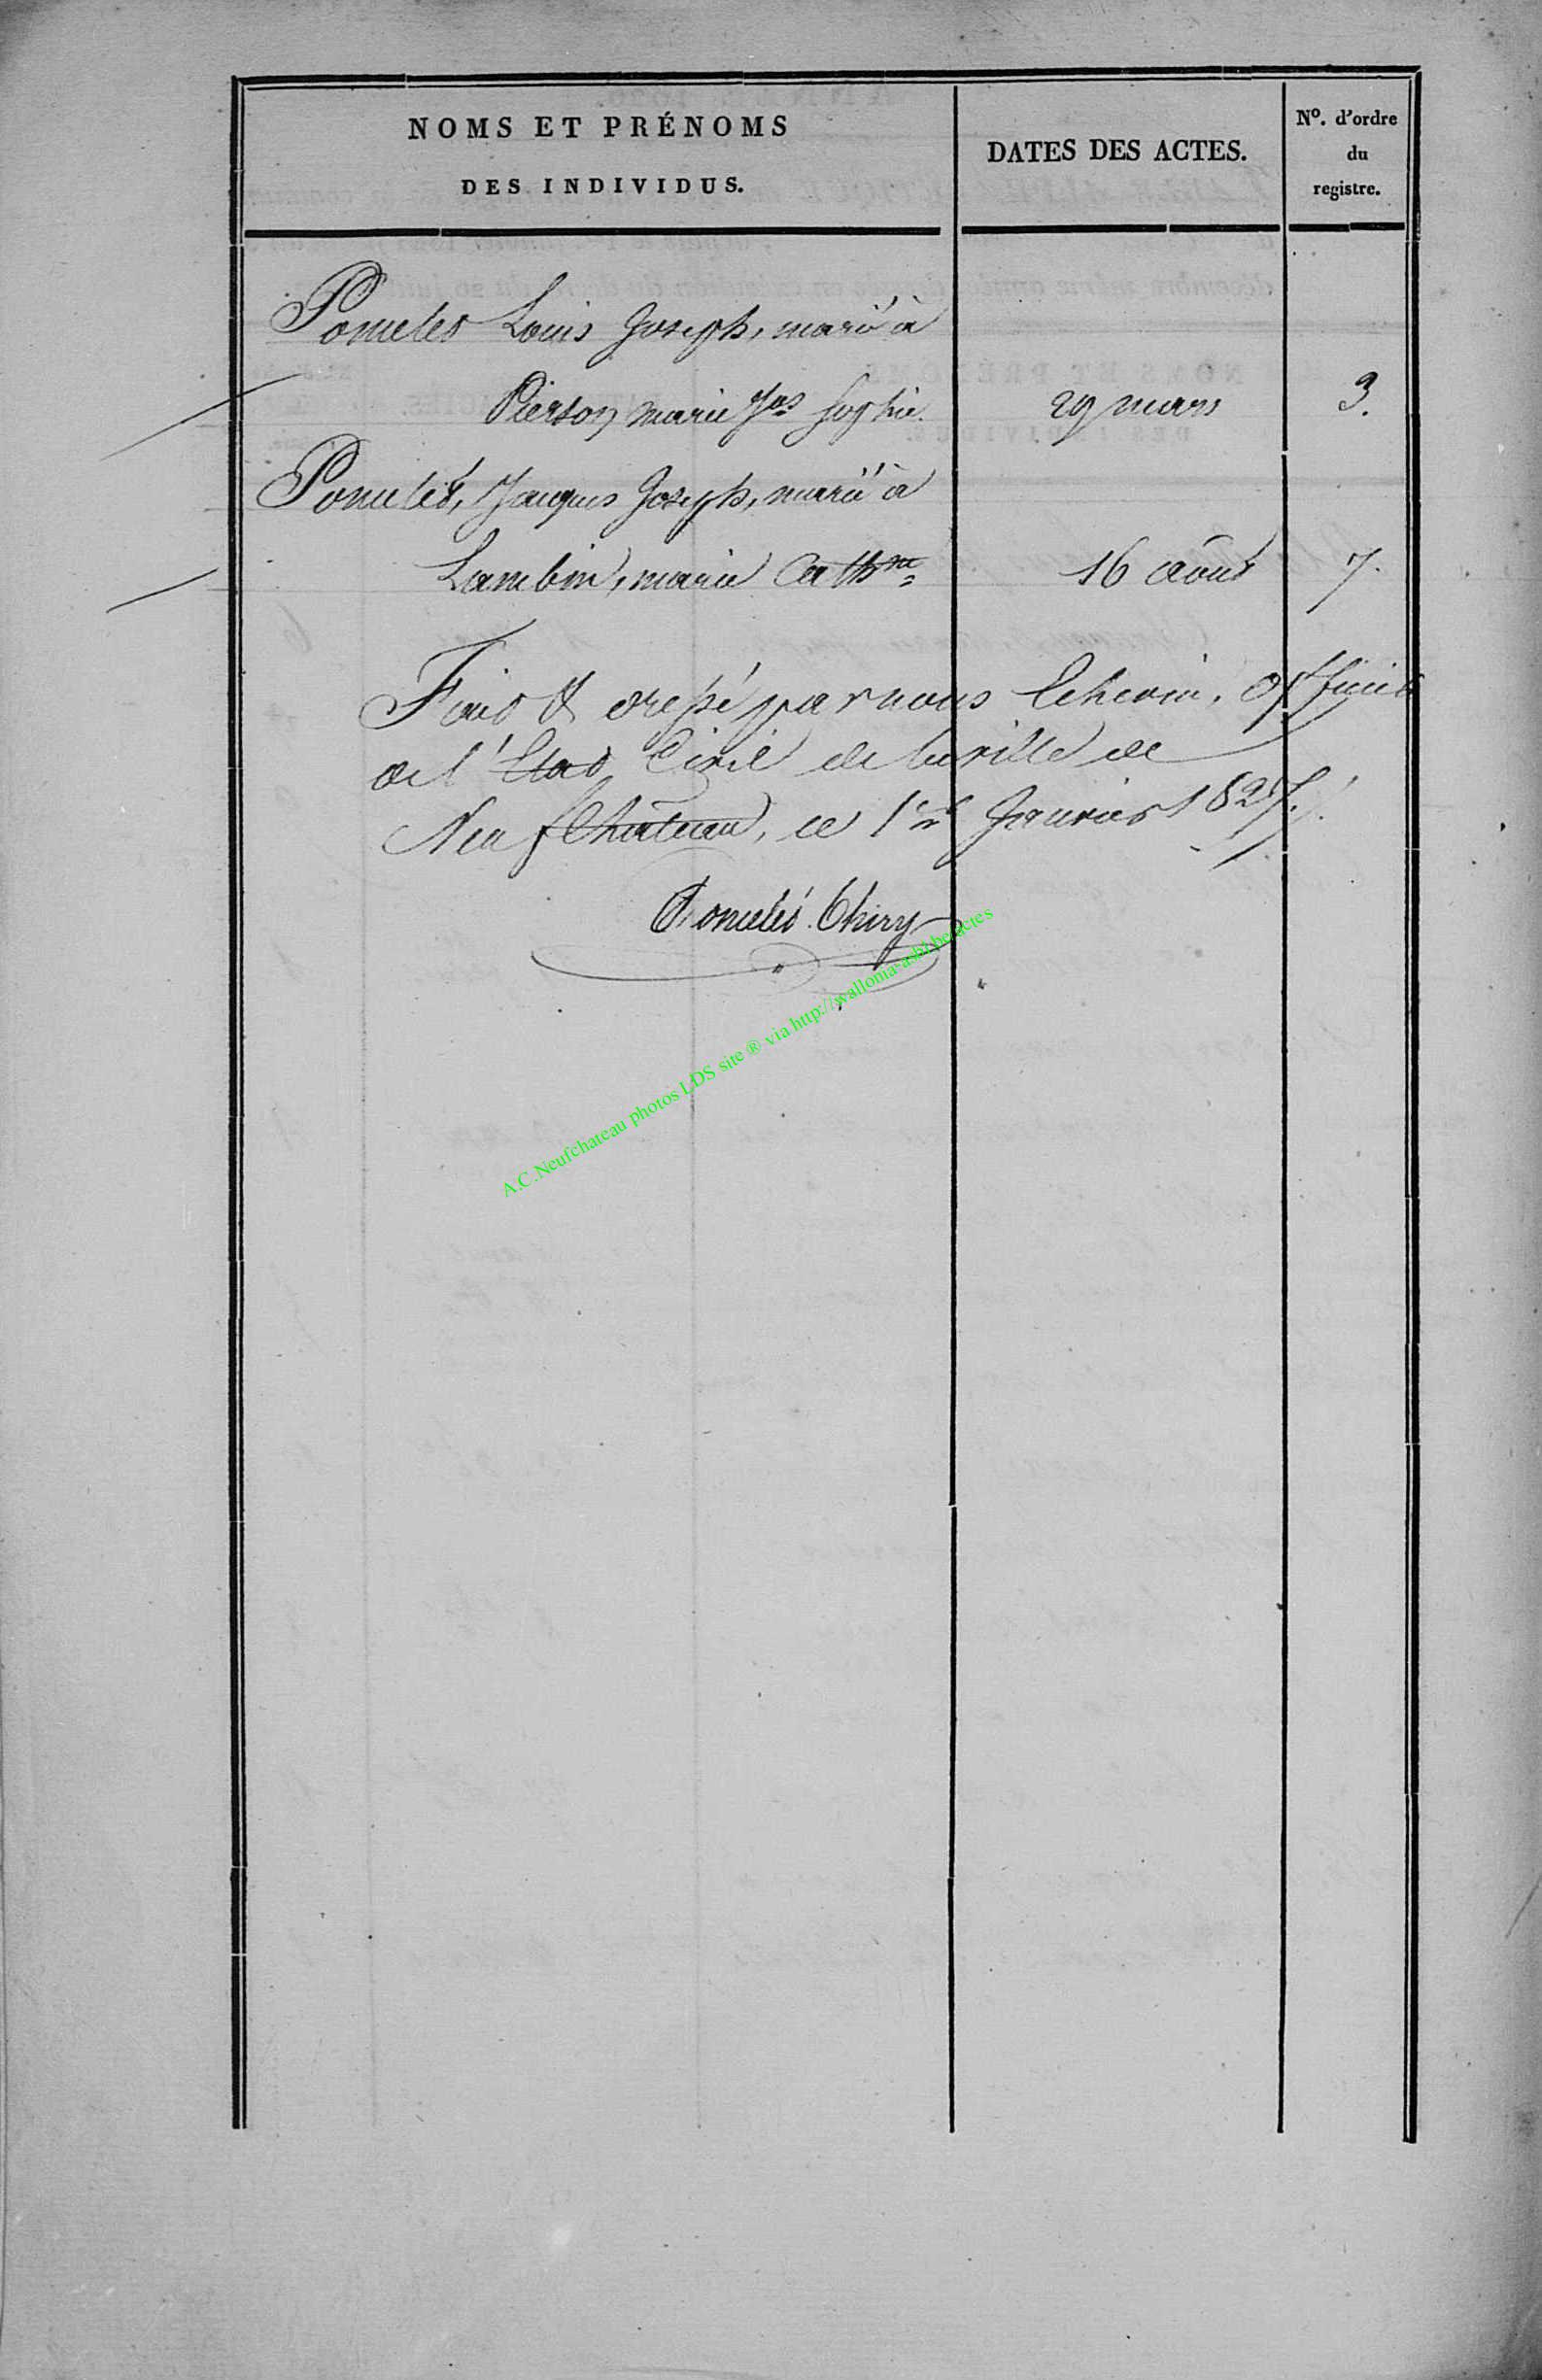 NOMS ET PRÉNOMS
DES INDIVIDUS.
DATES DES ACTES.
Nº. d'ordre
du
registre.
Poncelet Louis Joseph, marié à
Pierson marie Jos Sophie. 29 mars 3.
Poncelet, Jacques Joseph, marié à
Lambin, marie Cathne 16 août 7.
Fait & dressé par nous Echevin, officier
de l'Etat Civil de la ville de
Neufchateau, ce 1er Janvier 1827.
Poncelet Thiry
A.C.Neufchateau photos LDS site ® via http://wallonia-asbl.be/actes